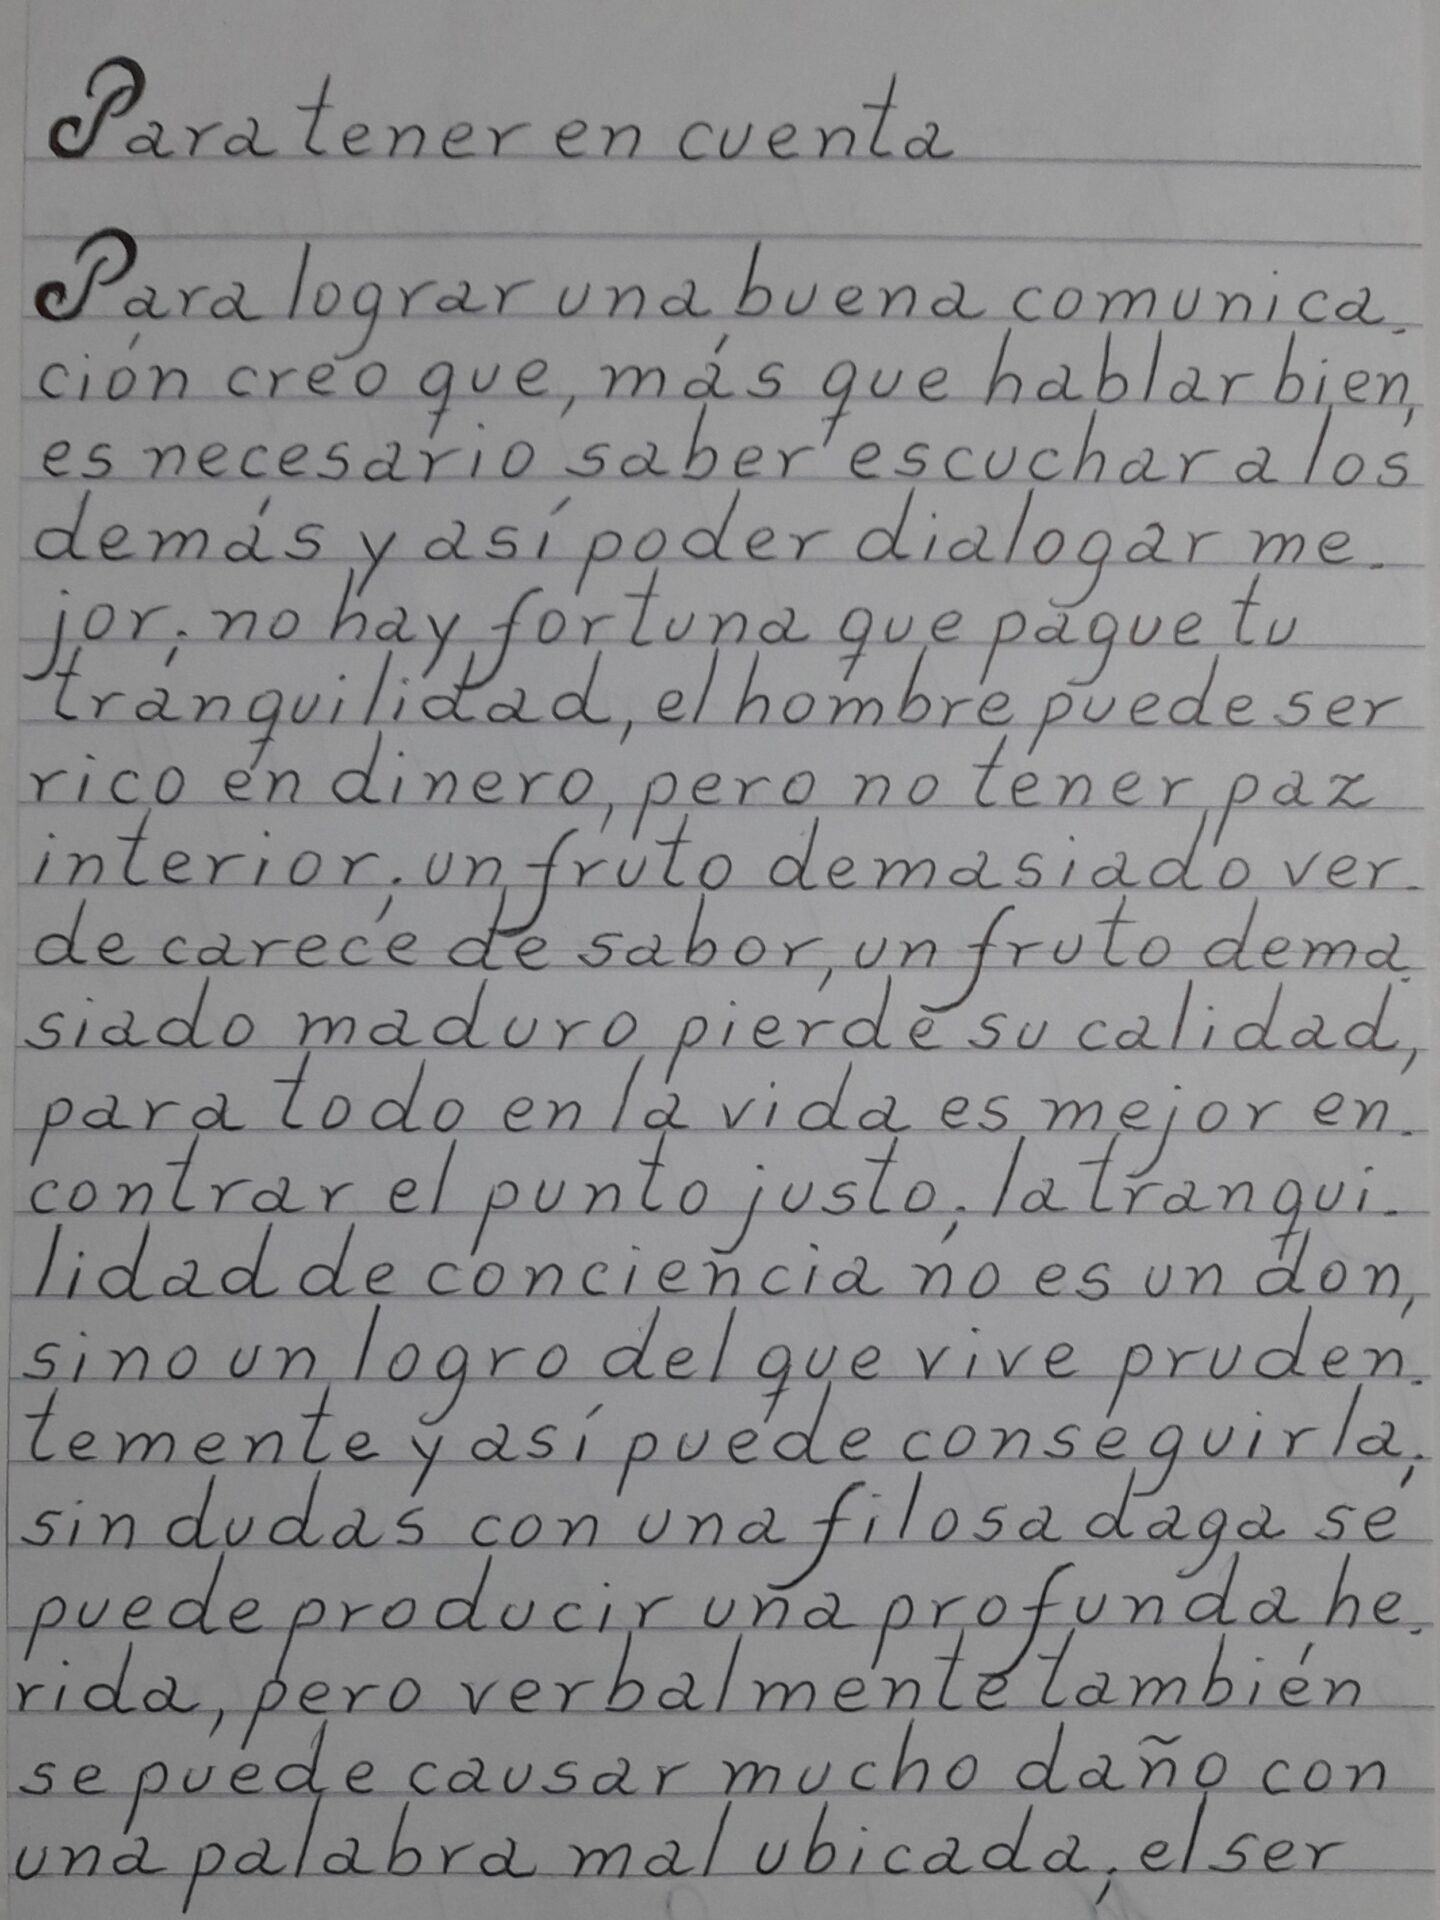 Para tener en cuenta
Para lograr una buena comunica-
ción creo que, más que hablar bien,
es necesario saber escuchar a los
demás y así poder dialogar me-
jor; no hay fortuna que pague tu
tranquilidad, el hombre puede ser
rico en dinero, pero no tener paz
interior; un fruto demasiado ver-
de carece de sabor, un fruto dema-
siado maduro pierde su calidad,
para todo en la vida es mejor en-
contrar el punto justo; la tranqui-
lidad de conciencia no es un don,
sino un logro del que vive pruden-
temente y así puede conseguirla;
sin dudas con una filosa daga se
puede producir una profunda he-
rida, pero verbalmente también
se puede causar mucho daño con
una palabra mal ubicada; el ser